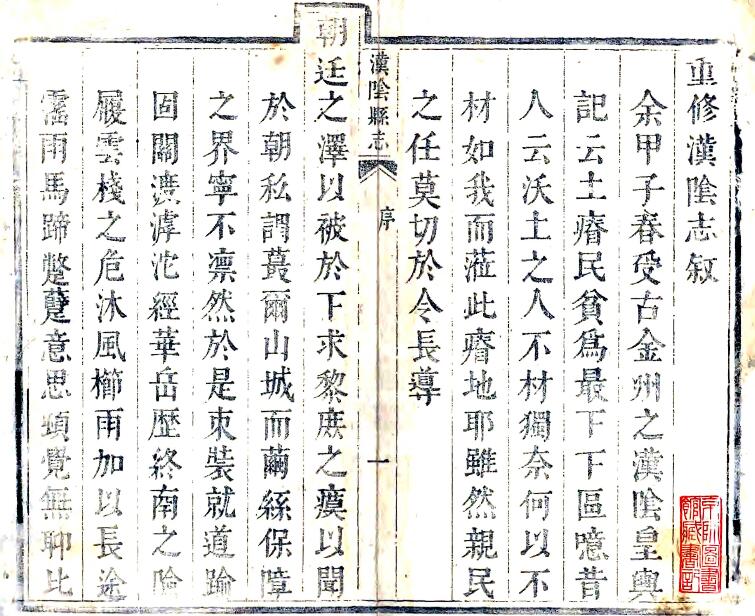 重修漢陰志叙
余甲子春受古金州之漢陰皇輿
記云土瘠民貧爲最下下區噫昔
人云沃土之人不材獨奈何以不
材如我而蒞此瘠地耶雖然親民
之任莫切於令長導
漢陰縣志
序
一
朝廷之澤以被於下求黎庶之瘼以聞
於朝私謂蕞爾山城而繭絲保障
之界寧不凛然於是束裝就道踰
固關濟滹沱經華岳歴終南之險
履雲棧之危沐風櫛雨加以長途
霪雨馬蹄蹩躠意思頓覺無聊比